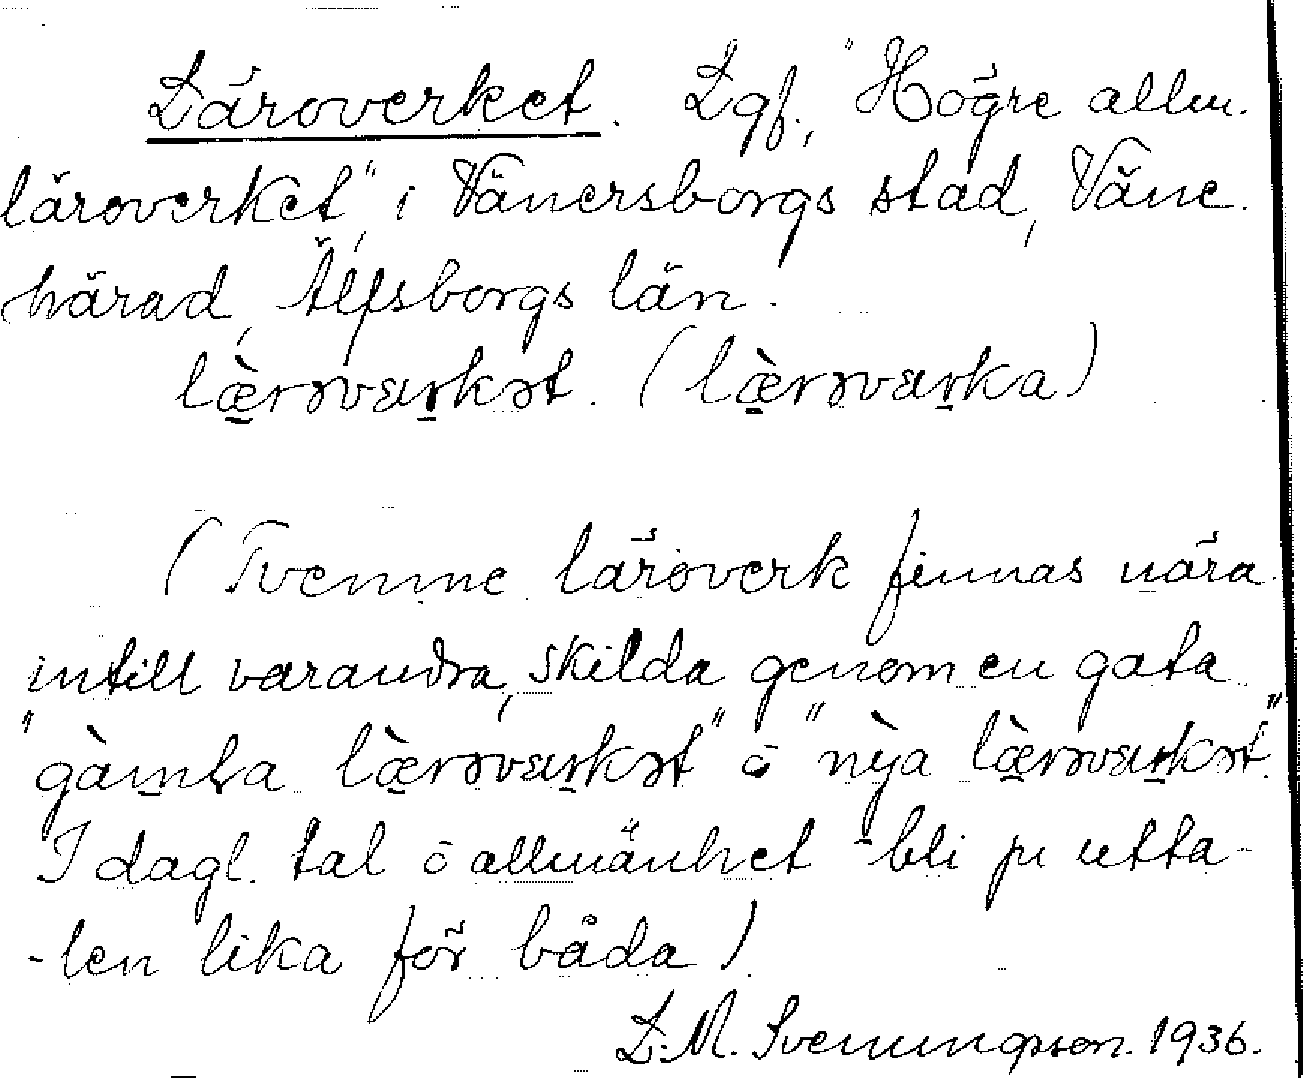 Läroverket. Lgf., "Högre allm.
läroverket", i Vänersborgs stad, Väne
härad, Älfsborgs län.
læ̀rɔvæṛkət. (læ̀rɔvæṛka)
(Tvenne läroverk finnas nära
intill varandra, skilda genom en gata
"gàmḷa læ̀rɔvæṛkət" ō "nỳa læ̀rɔvæṛkət."
I dagl. tal ō allmänhet bli ju utta-
-len lika för båda)
L. M. Svenungsson. 1936.